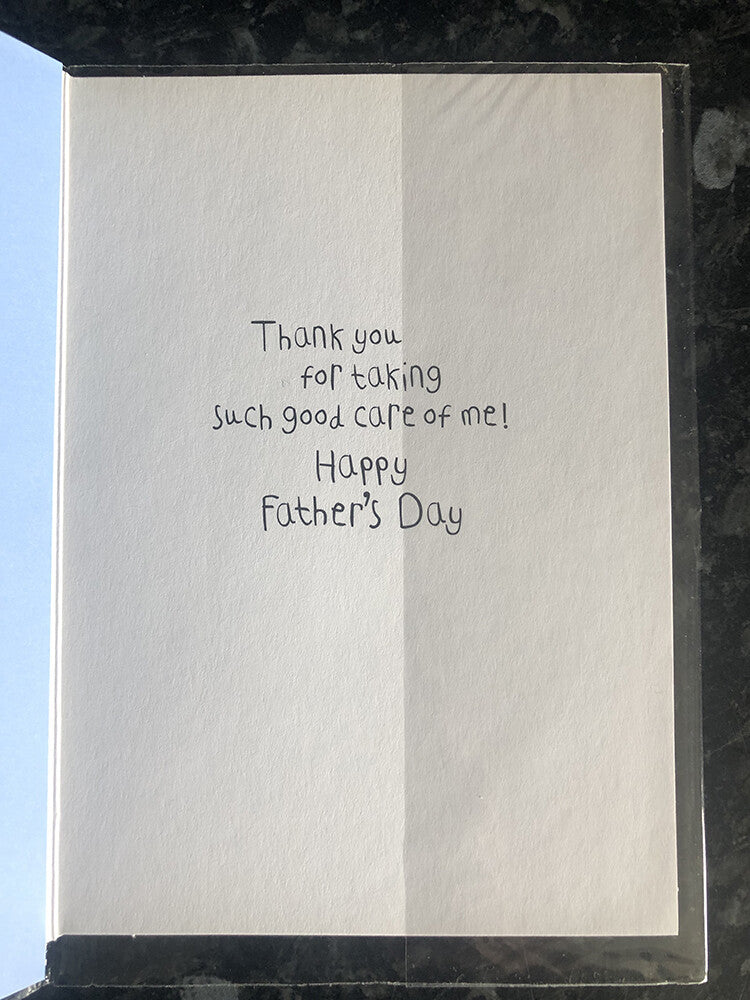 Thank you
for taking
such good care of me!
Happy
Father's Day